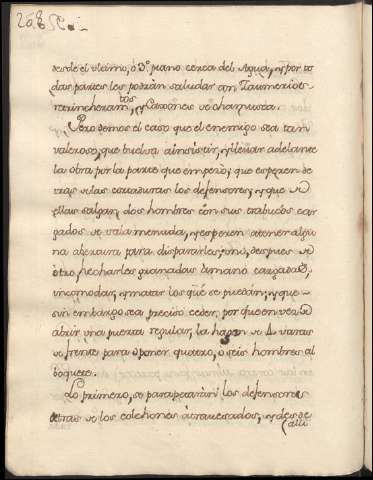 desde el ultimo, o 3º piano cerca del Agua, y por to
das partes les podran saludar con Taumerios
trincheram.tos y Caxones de chamusca.
Pero demos el caso que el enemigo sea tan
valeroso, que buelva a insistir, y llevar adelante
la obra por la parte que empezò, que esperen de
tras de las cortaduras los defensores, y que de
ellas salgan dos hombres con sus trabucos car
gados de vala menuda, y esperen a tener algu
na abertura para dispararles, uno, despues de
otro, hecharles granadas de mano cargadas,
incomodar, y matar los que se puedan; y que
sin embargo sea preciso ceder, por que en vez de
abrir una puerta regular, la hagan de 4 varas
de frente para oponer quatro, o seis hombres al
boquete.
Lo primero, se paraperaràn los defensores
detras de los colchones atravesados, y desde
alli